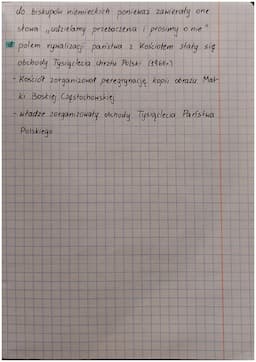 do biskupów niemieckich ponieważ zawierały one
słowa „udzielamy przebaczenia i prosimy o nie"
polem rywalizacji państwa z Kościołem stały się
obchody Tysiąclecia chrztu Polski (1966r.)
- Kościół zorganizował peregrynację kopii obrazu Mat-
ki Boskiej Częstochowskiej
- władze zorganizowały obchody Tysiąclecia Państwa
Polskiego